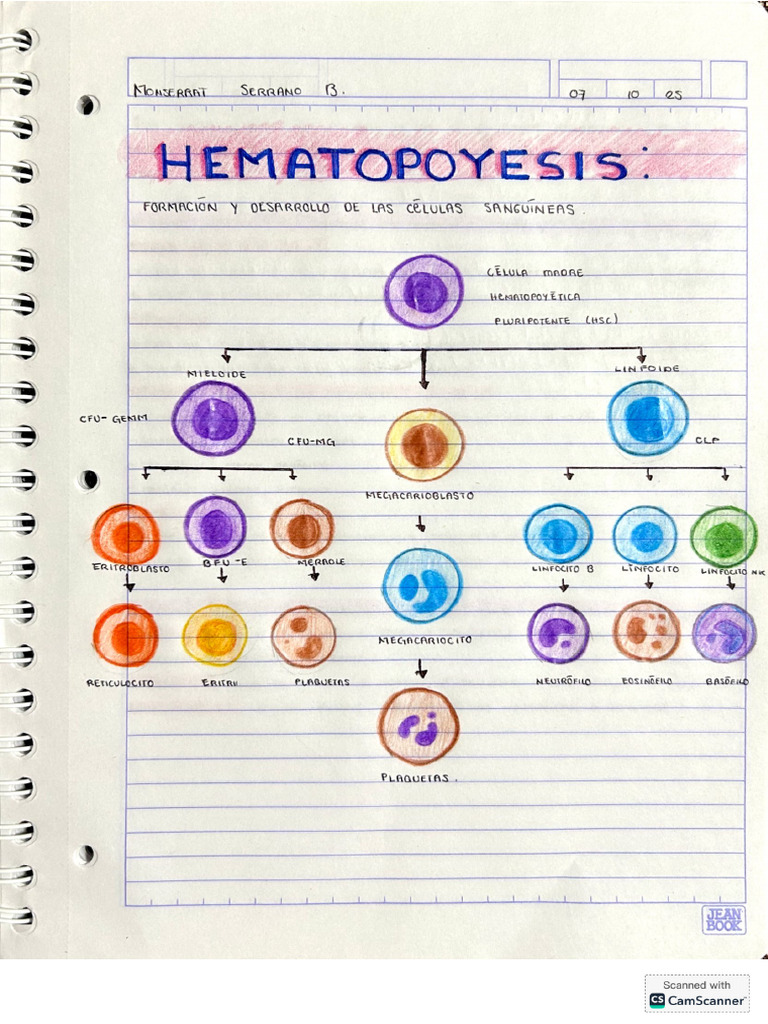 MONSERRAT SERRANO B.
07 10 25
HEMATOPOYESIS:
FORMACIÓN Y DESARROLLO DE LAS CÉLULAS SANGUÍNEAS.
CÉLULA MADRE
HEMATOPOYÉTICA
PLURIPOTENTE (HSC)
MIELOIDE
LINFOIDE
CFU-GEMM
CFU-MG
CLP
MEGACARIOBLASTO
ERITROBLASTO
BFU-E
LINFOCITO B
LINFOCITO
LINFOCITO NK
MEGACARIOCITO
RETICULOCITO
PLAQUETAS
NEUTRÓFILO
EOSINÓFILO
BASÓFILO
PLAQUETAS.
JEAN
BOOK
Scanned with
CS CamScanner